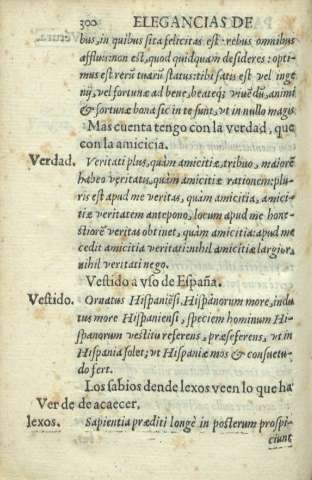 300 ELEGANCIAS DE
bus, in quibus sita felicitas est: rebus omnibus
affluis: non est, quod quidquam desideres: opti-
mus est rerũ tuarũ status: tibi satis est vel inge
nij, vel fortunæ ad bene, beateq; viuẽdũ, animi
& fortunæ bona sic in te sunt, vt in nullo magis.
Mas cuenta tengo con la verdad, que
con la amicicia.
Verdad. Veritati plus, quàm amicitiæ, tribuo, maiorẽ
habeo veritatis, quàm amicitiæ rationem: plu-
ris est apud me veritas, quàm amicitia, amici-
tiæ veritatem antepono, locum apud me hone-
stiorẽ veritas obtinet, quàm amicitia: apud me
cedit amicitia veritati: nihil amicitiæ largior,
nihil veritati nego.
Vestido a vso de España.
Vestido. Ornatus Hispaniẽsi. Hispanorum more, indu
tus more Hispaniensi, speciem hominum Hi-
spanorum vestitu referens, præseferens, vt in
Hispania solet; vt Hispaniæ mos & consuetu-
do fert.
Los sabios dende lexos veen lo que ha
Ver de de acaecer.
lexos. Sapientia præditi longè in posterum prospi-
ciunt